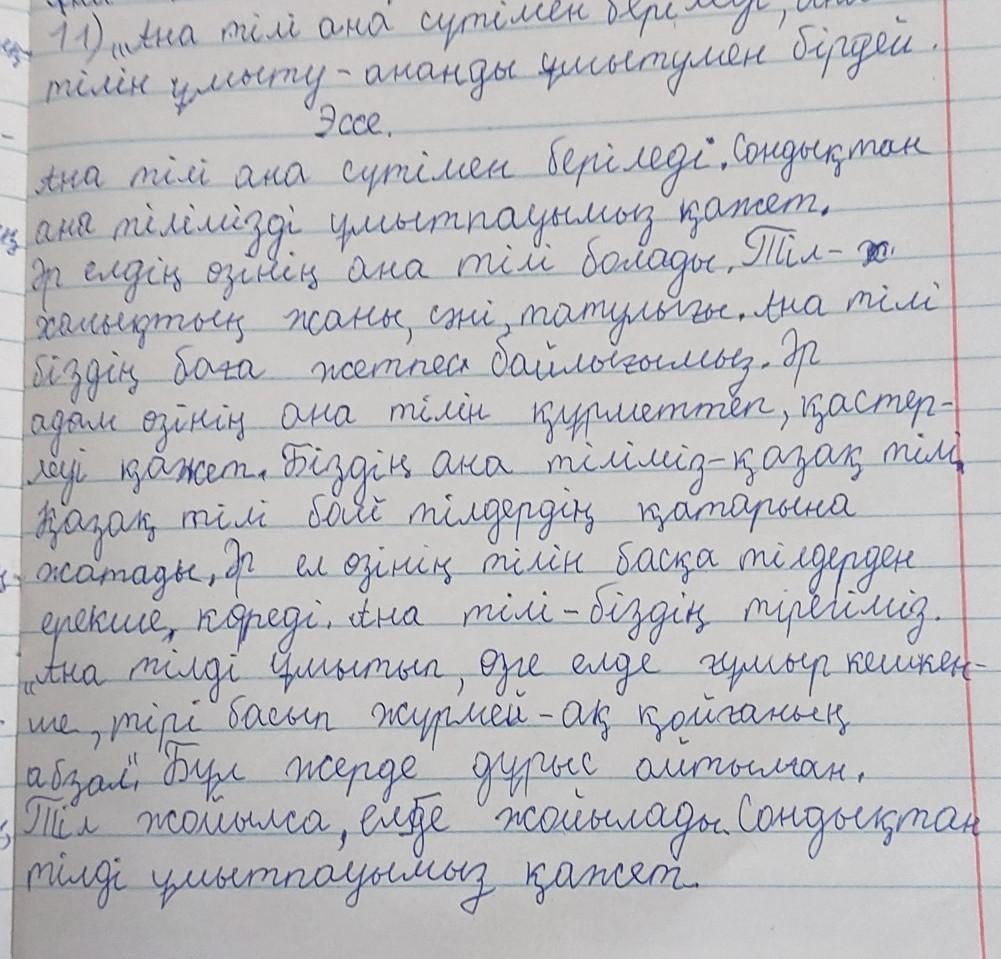 11) „Ана тілі ана сүтімен беріледі, ана
тілін ұмыту - ананды ұмытумен бірдей.
Эссе.
Ана тілі ана сүтімен беріледі. Сондықтан
ана тілімізді ұмытпауымыз қажет.
Әр елдің өзінің ана тілі болады. Тіл -
халықтың жаны, сәні, татулығы. Ана тілі
біздің баға жетпес байлығымыз. Әр
адам өзінің ана тілін құрметтеп, қастер-
леуі қажет. Біздің ана тіліміз - қазақ тілі.
Қазақ тілі бай тілдердің қатарына
жатады. Әр ел өзінің тілін басқа тілдерден
ерекше көреді. Ана тілі - біздің тірегіміз.
„Ана тілді ұмытып, өзге елде ғұмыр кешкен-
ше, тірі басып жүрмей-ақ қойғаның
абзал". Бұл жерде дұрыс айтылған.
Тіл жойылса, елде жойылады. Сондықтан
тілді ұмытпауымыз қажет.